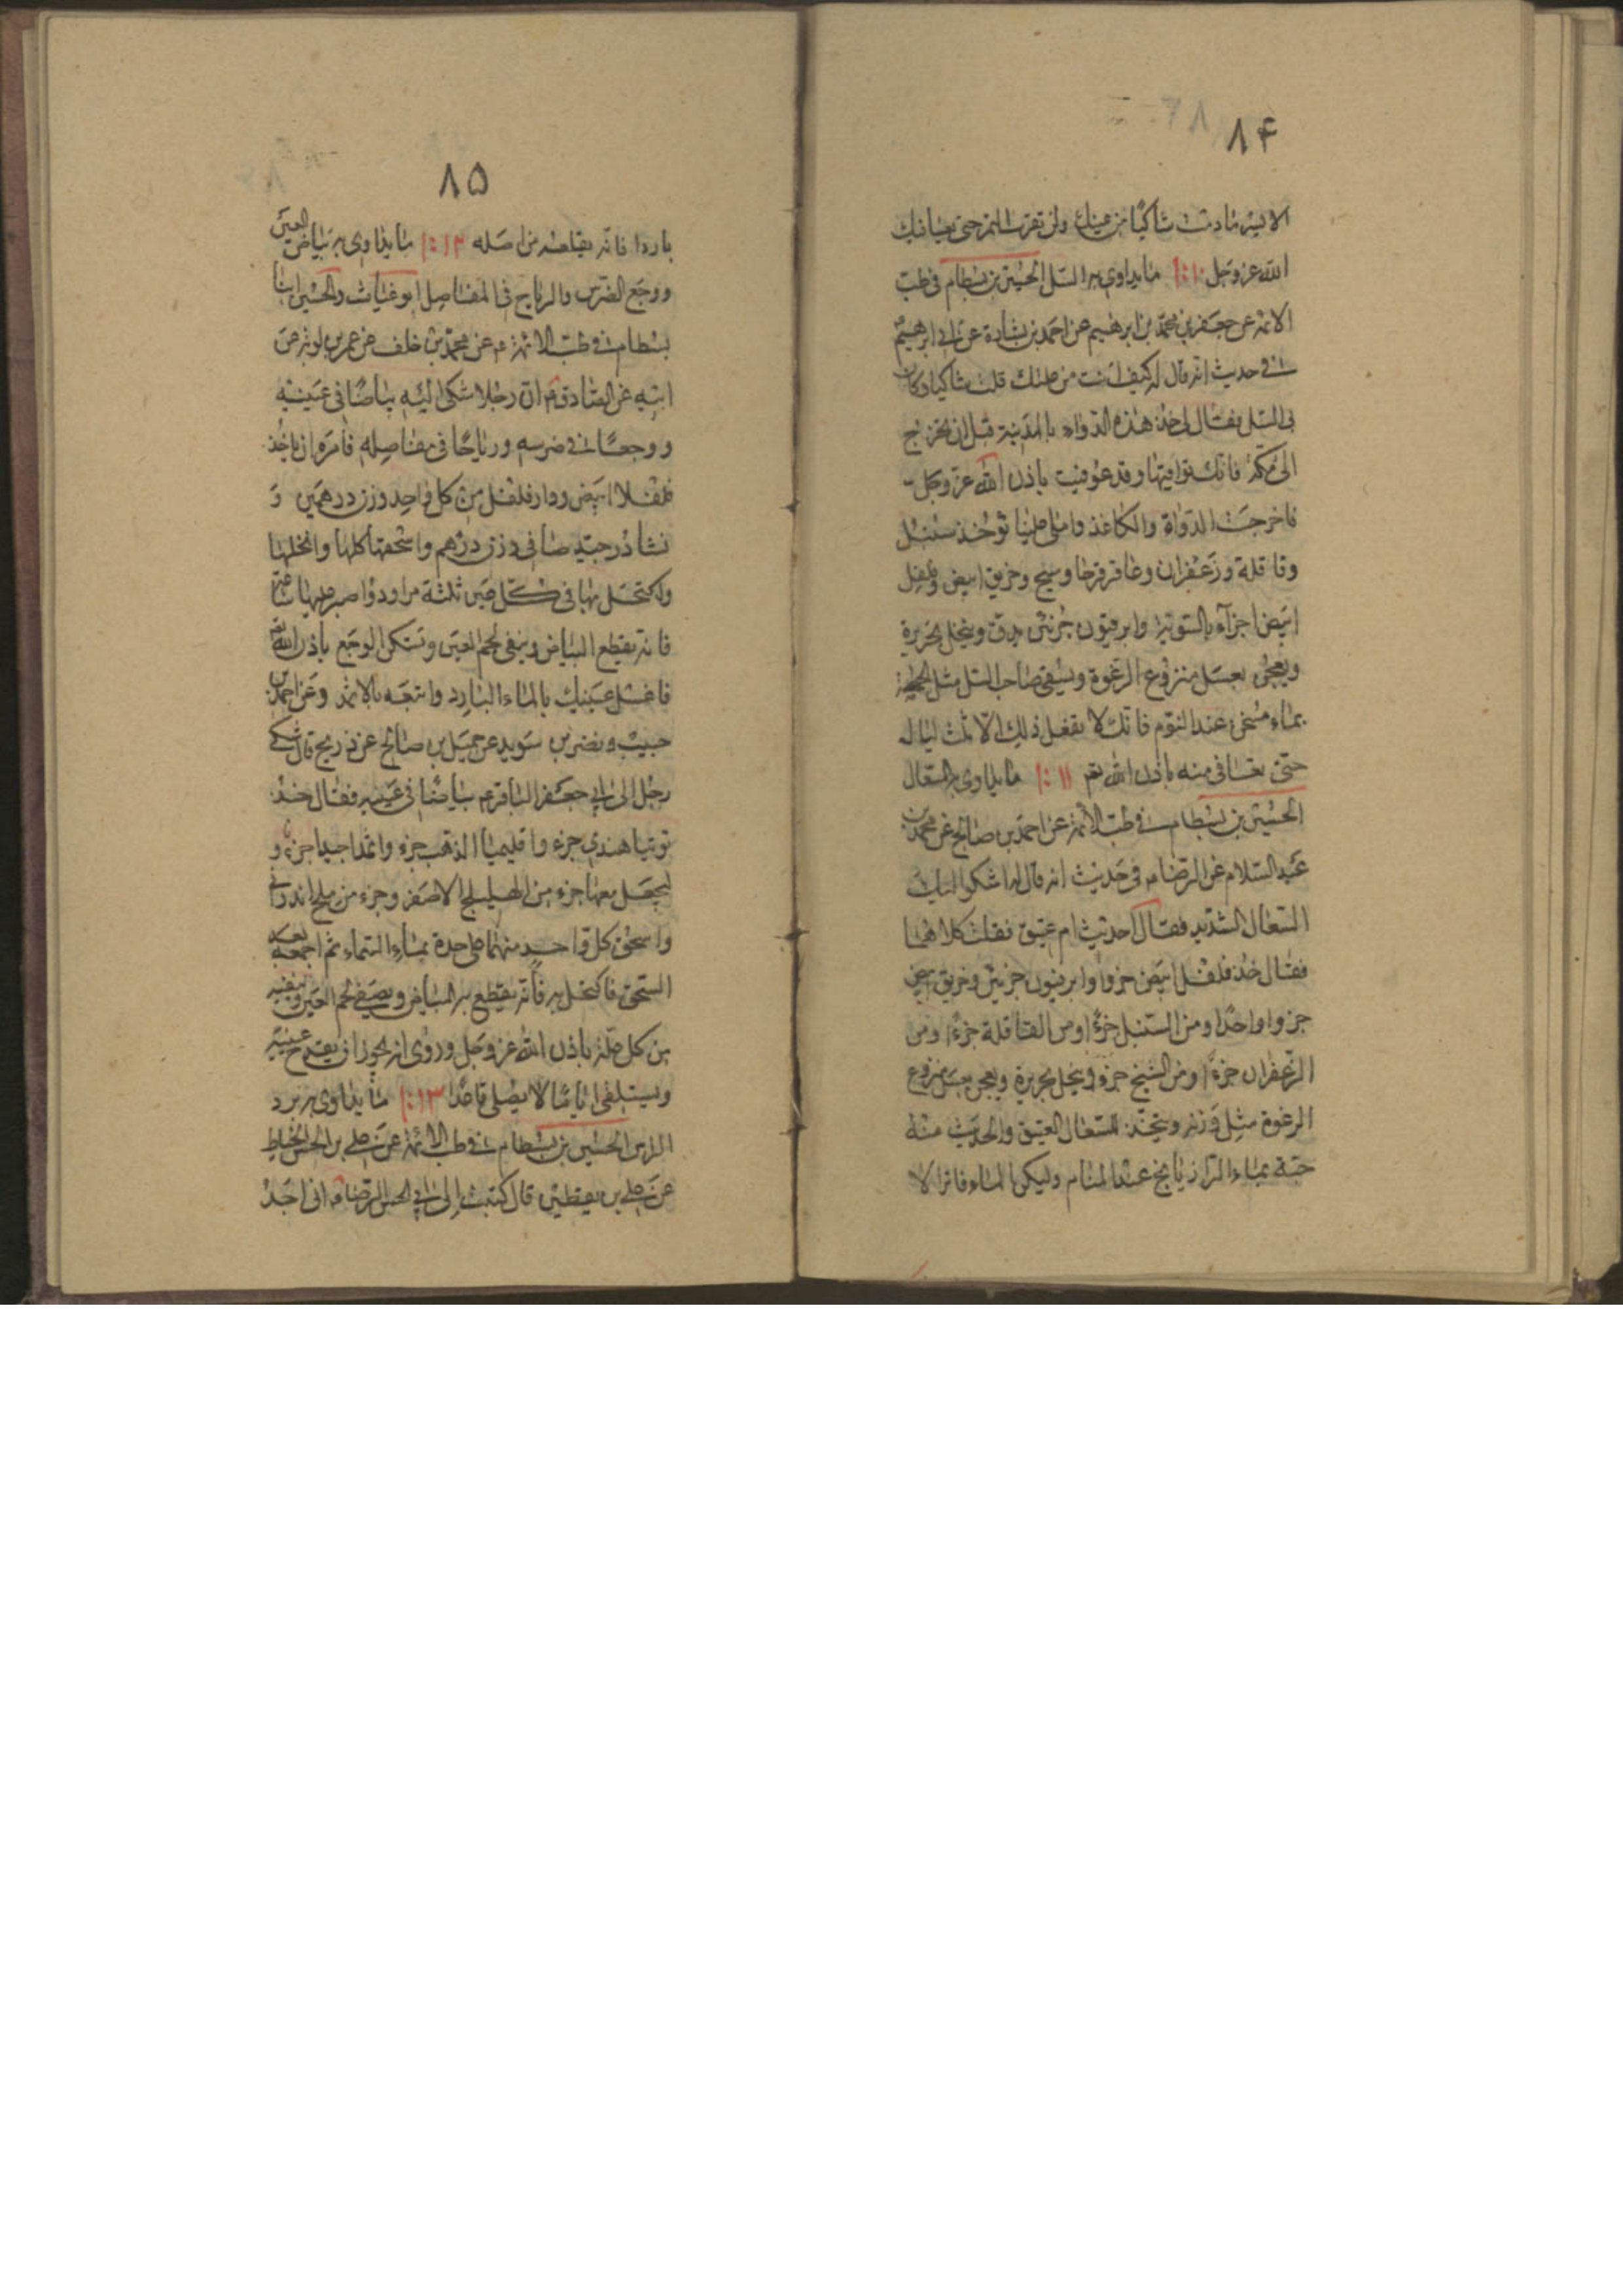 ٨۴
الله عز وجل ١٠:١ ما يداوى به السل الحسين بن بسطام فى طب
الائمة عن جعفر بن محمد بن ابرهيم عن احمد بن بشارة
فى حديث انه قال له كيف انت من علتك قلت شاكيا وكان
بى السل فقال لى خذ هذه الدواء بالمدينة قبل ان تخرج
الى مكة فانك توافيها وقد عوفيت باذن الله عز وجل
فاخرجت الدواة والكاغذ واملى علينا تؤخذ سنبل
وقاقلة وزعفران وعاقرقرحا وبنج وخربق ابيض وفلفل
ابيض اجزآء بالسوية وابرفيون جزئين يدق وينخل بحريرة
ويعجن بعسل منزوع الرغوة ويسقى صاحب السل مثل الحمصة
بماء مسخن عند النوم فانك لا تفعل ذلك الا ثلث ليال
حتى تعافى منه باذن الله تعم ١١:١ ما يداوى به السعال
الحسين بن بسطام فى طب الائمة عن احمد بن صالح عن محمد بن
عبد السلام عن الرضام فى حديث انه قال له اشكوا اليك
السعال الشديد فقال احديث ام عتيق فقلت كلاهما
فقال خذ فلفل ابيض جزوا وابرفيون جزئين وخربق ابيض
جزوا واحدا ومن السنبل جزءا ومن القاقلة جزءا ومن
الزعفران جزءا ومن البنج جزءا وينخل بحريرة ويعجن بعسل منزوع
الرغوة مثل وزنه ويتخذ للسعال العتيق والحديث منه
حبة بماء الرازيانج عند المنام وليكن الماء فاترا لا
٨۵
باردا فانه يقلعه من اصله ١٢:١ ما يداوى به بياض العين
ووجع الضرس والرياح فى المفاصل ابو غياث والحسين ابنا
بسطام فى طب الائمة عم عن محمد بن خلف عن عمر بن توبه عن
ابيه عن الصادق م ان رجلا شكى اليه بياضا فى عينيه
ووجعا فى ضرسه ورياحا فى مفاصله فامره ان ياخذ
فلفلا ابيض ودارفلفل من كل واحد وزن درهمين و
نشادر جيد صافى وزن درهم واسحقها كلها وانخلها
واكتحل بها فى كل عين ثلثة مراود واصبر عليها ساعة
فانه يقطع البياض وينقى لحم العين وتسكن الوجع باذن الله
فاغسل عينيك بالماء البارد واتبعه بالاثمد وعن احمد بن
حبيب ونضر بن سويد عن جميل بن صالح عن ذريح قال شكى
رجل الى ابى جعفر الباقر عم بياضا فى عينيه فقال خذ
توتيا هندى جزء واقليميا الذهب جزء واثمدا جيدا جزء و
ليجعل معها جزء من الهليلج الاصفر وجزء من ملح اندرانى
واسحق كل واحد منهما على حدة بماء السماء ثم اجمعه بعد
السحق فاكتحل به فانه يقطع به البياض ويصفى لحم العين وينقيه
من كل علة باذن الله عز وجل وروى انه يجوز ان يقدح عينيه
ويستلقى اياما لا يصلى قاعدا ١٣:١ ما يداوى به برد
الراس الحسين بن بسطام فى طب الائمة عن على بن الحسن الخياط
عن على بن يقطين قال كتبت الى ابى الحسن الرضام انى اجد